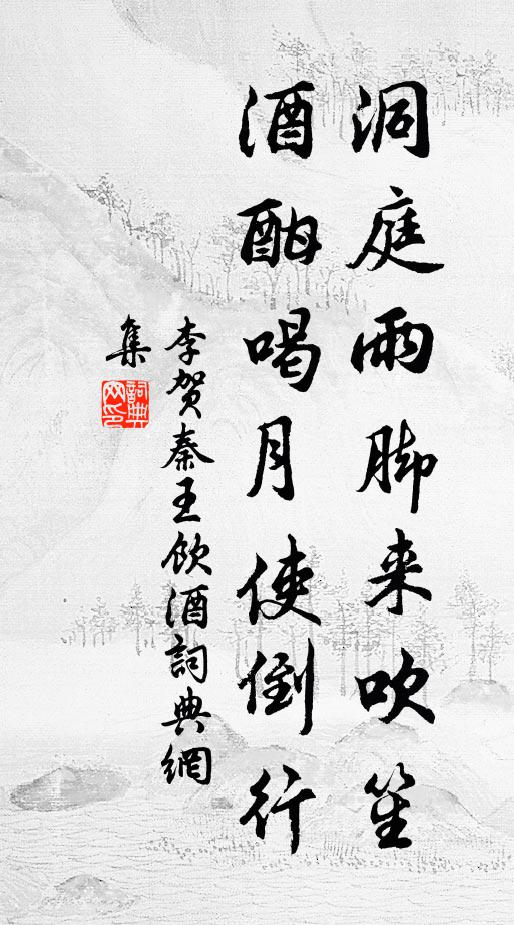 洞庭雨脚来吹笙
酒酣喝月使倒行
李贺秦王饮酒詞典網
集
詞典
网印